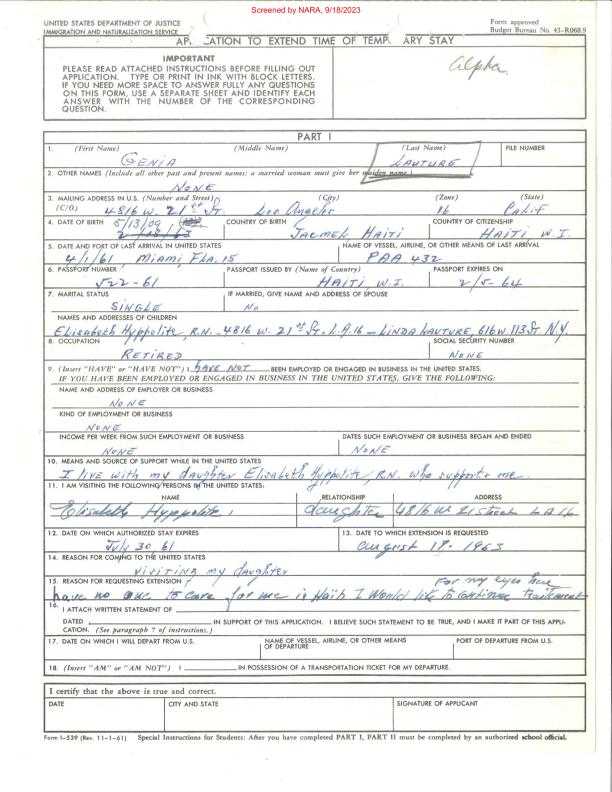 Screened by NARA, 9/18/2023
UNITED STATES DEPARTMENT OF JUSTICE
IMMIGRATION AND NATURALIZATION SERVICE
Form approved
Budget Bureau No. 43-R068.9
TO EXTEND TIME OF STAY
IMPORTANT
PLEASE READ ATTACHED INSTRUCTIONS BEFORE FILLING OUT
APPLICATION. TYPE OR PRINT IN INK WITH BLOCK LETTERS.
IF YOU NEED MORE SPACE TO ANSWER FULLY ANY QUESTIONS
ON THIS FORM, USE A SEPARATE SHEET AND IDENTIFY EACH
ANSWER WITH THE NUMBER OF THE CORRESPONDING
QUESTION.
alpha
PART I
1. (First Name) (Middle Name) (Last Name) FILE NUMBER
GENIA LAUTURE
2. OTHER NAMES (Include all other past and present names: a married woman must give her maiden name.)
NONE
3. MAILING ADDRESS IN U.S. (Number and Street) (City) (Zone) (State)
(C/O) 4816 W. 21st St. Los Angeles 16 Calif
4. DATE OF BIRTH COUNTRY OF BIRTH COUNTRY OF CITIZENSHIP
5/13/09 JACMEL HAITI HAITI W.I.
5. DATE AND PORT OF LAST ARRIVAL IN UNITED STATES NAME OF VESSEL, AIRLINE, OR OTHER MEANS OF LAST ARRIVAL
4/1/61 MIAMI FLA. 15 PAA 432
6. PASSPORT NUMBER PASSPORT ISSUED BY (Name of Country) PASSPORT EXPIRES ON
522-61 HAITI, W.I. 2/5-64
7. MARITAL STATUS IF MARRIED, GIVE NAME AND ADDRESS OF SPOUSE
SINGLE No
NAMES AND ADDRESSES OF CHILDREN
Elisabeth Hyppolite, R.N. - 4816 W. 21st St. L.A. 16 - LINDA LAUTURE, 616 W. 113 St N.Y.
8. OCCUPATION SOCIAL SECURITY NUMBER
RETIRED NONE
9. (Insert "HAVE" or "HAVE NOT") I HAVE NOT BEEN EMPLOYED OR ENGAGED IN BUSINESS IN THE UNITED STATES.
IF YOU HAVE BEEN EMPLOYED OR ENGAGED IN BUSINESS IN THE UNITED STATES, GIVE THE FOLLOWING:
NAME AND ADDRESS OF EMPLOYER OR BUSINESS
NONE
KIND OF EMPLOYMENT OR BUSINESS
NONE
INCOME PER WEEK FROM SUCH EMPLOYMENT OR BUSINESS DATES SUCH EMPLOYMENT OR BUSINESS BEGAN AND ENDED
NONE NONE
10. MEANS AND SOURCE OF SUPPORT WHILE IN THE UNITED STATES
I live with my daughter Elisabeth Hyppolite, R.N. who supports me.
11. I AM VISITING THE FOLLOWING PERSONS IN THE UNITED STATES:
NAME RELATIONSHIP ADDRESS
Elisabeth Hyppolite daughter 4816 W 21 street L A 16
12. DATE ON WHICH AUTHORIZED STAY EXPIRES 13. DATE TO WHICH EXTENSION IS REQUESTED
July 30 61 august 18. 1963
14. REASON FOR COMING TO THE UNITED STATES
Visiting my daughter
15. REASON FOR REQUESTING EXTENSION For my eyes here
have no one to care for me in Haiti I Would like to continue traitement
16. I ATTACH WRITTEN STATEMENT OF
DATED IN SUPPORT OF THIS APPLICATION. I BELIEVE SUCH STATEMENT TO BE TRUE, AND I MAKE IT PART OF THIS APPLI-
CATION. (See paragraph 7 of instructions.)
17. DATE ON WHICH I WILL DEPART FROM U.S. NAME OF VESSEL, AIRLINE, OR OTHER MEANS OF DEPARTURE PORT OF DEPARTURE FROM U.S.
18. (Insert "AM" or "AM NOT") I IN POSSESSION OF A TRANSPORTATION TICKET FOR MY DEPARTURE.
I certify that the above is true and correct.
DATE CITY AND STATE SIGNATURE OF APPLICANT
Form I-539 (Rev. 11-1-61) Special Instructions for Students: After you have completed PART I, PART II must be completed by an authorized school official.